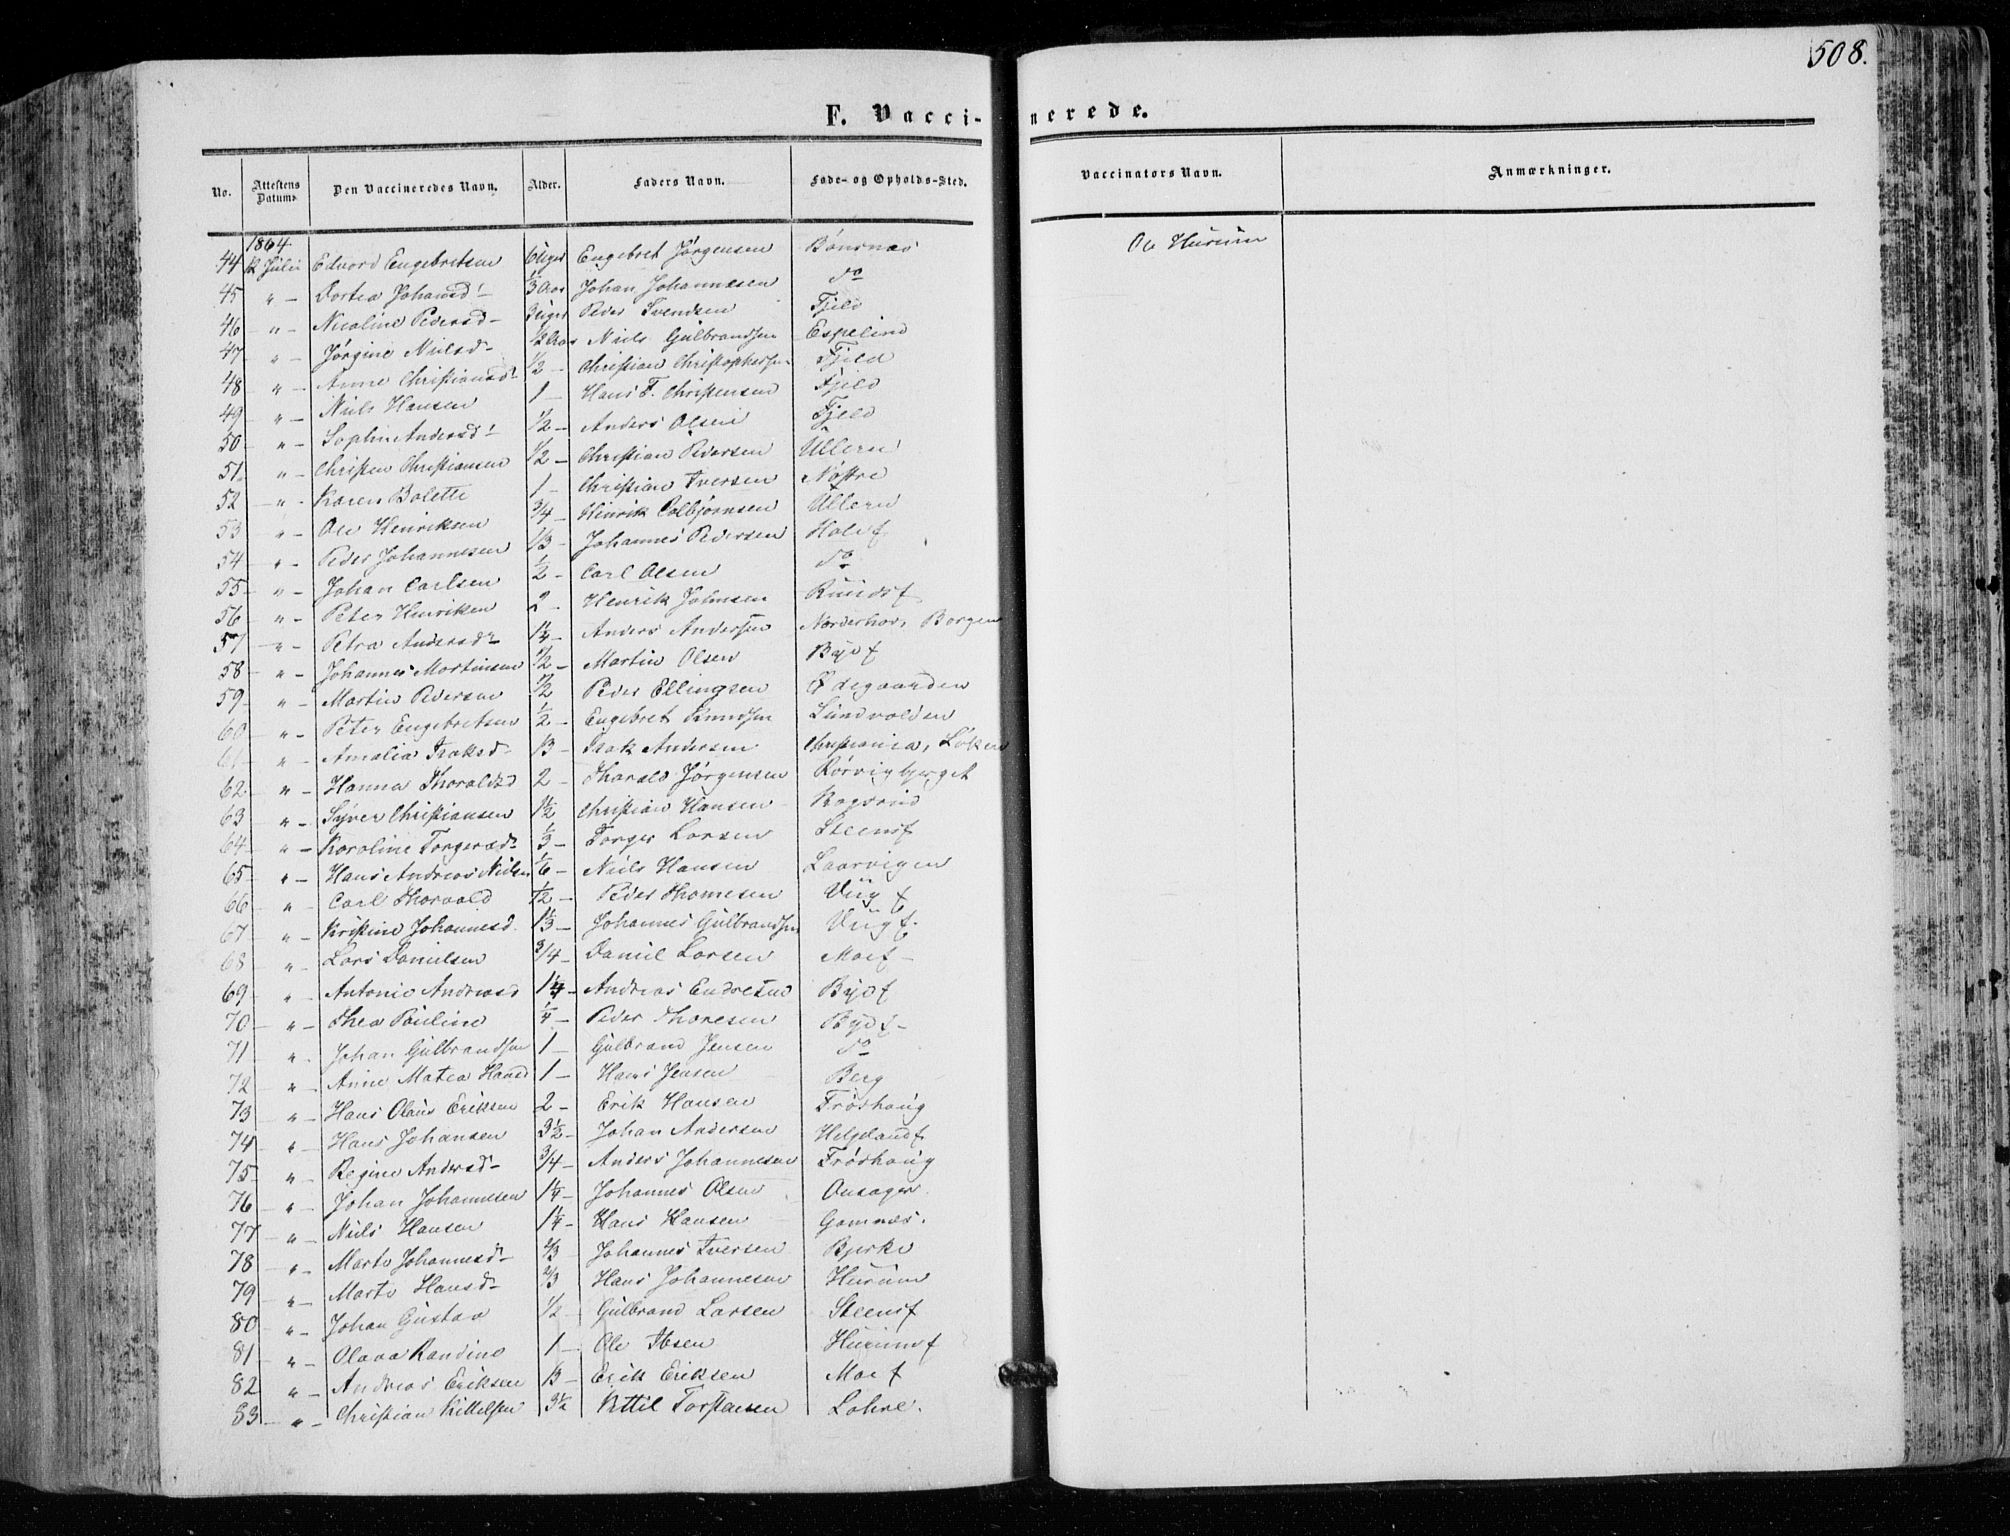 508.
F. Vaccinerede.
No. Attestens Datum. Den Vaccineredes Navn. Alder. Faders Navn. Føde- og Opholds-Sted. Vaccinators Navn. Anmærkninger.
1864
44 Juli Edvard Engebretsen 6 Uger Engebret Jørgensen Bönsnæs Ole Hurum
45 " – Dortea Johansd 1/3 Aar Johan Johannesen do
46 " – Nicoline Pedersd – 3 Uger Peder Svendsen Fjeld
47 " – Jørgine Nielsd – 1/2 Aar Niels Gulbrandsen Espelind
48 " – Anne Christiansd – 1/2 – Christian Christophersen Fjeld
49 " – Niels Hansen 1 – Hans F. Christensen Fjeld
50 " – Sophie Andersd 1/2 – Anders Olsen Fjeld
51 " – Christen Christiansen 1/2 – Christian Pedersen Ullern
52 " – Karen Bolette 1 – Christian Iversen Nøstre
53 " – Ole Henriksen 3/4 – Henrik Colbjørnsen Ullern
54 " – Peder Johannesen 1/3 – Johannes Pedersen Holef
55 " – Johan Carlsen 1/2 – Carl Olsen do
56 " – Peter Henriksen 2 – Henrik Johnsen
57 " – Petra Andersd – 1 1/4 – Anders Andersen Norderhov, Borgen
58 " – Johannes Martinsen 1/2 – Martin Olsen Byef
59 " – Martin Pedersen 1/2 Peder Ellingsen Ødegaarden
60 " – Peter Engebretsen 1/2 – Engebret Knudsen Sundvolden
61 " – Amalia Isaksd – Isak Andersen Christiania, Løken
62 " – Hanna Thoraldsd 2 – Thorald Jørgensen Rörvigbjerget
63 " – Syver Christiansen 1 1/2 Christian Hansen
64 " – Karoline Torgersd – 1/3 – Torger Larsen Steensf
65 " – Hans Andreas Nielsen 1/6 – Niels Hansen Laarvigen
66 " Carl Thorvald 1/2 – Peder Thomesen Viig f
67 " – Kristine Johannesd. 1 1/3 – Johannes Gulbrandsen Viig f.
68 " – Lars Danielsen 3/4 – Daniel Larsen Moef –
69 " – Antonie Andreasd 1 1/4 – Andreas Endresen Byef
70 " – Thea Pauline 1/4 – Peder Thoresen Byef –
71 " . Johan Gulbrandsen 1 – Gulbrand Jensen do
72 " – Anne Matea Hansd 1 – Hans Jensen Berg
73 " – Hans Olaus Eriksen 2 – Erik Hansen Frøshaug
74 " – Hans Johansen 3 1/2 – Johan Andersen Helgelandf
75 " – Regine Andersd – 3/4 – Anders Johannesen Frøshaug
76 " – Johan Johannesen 1 1/4 – Johannes Olsen Onsager.
77 " – Niels Hansen 1 1/4 – Hans Hansen Gomnæs.
78 " – Marte Johannesd – 2/3 Johannes Iversen Bjerke
79 " – Marte Hansd – 2/3 Hans Johannesen Hurum
80 " – Johan Gustav 1/2 – Gulbrand Larsen Steensf
81 " – Olava Randine 1 – Ole Ibsen Hurumsf
82 " – Andreas Eriksen Erik Eriksen Moef
83 " – Christian Kittelsen 3 1/2 Kittil Torstensen Lohre.